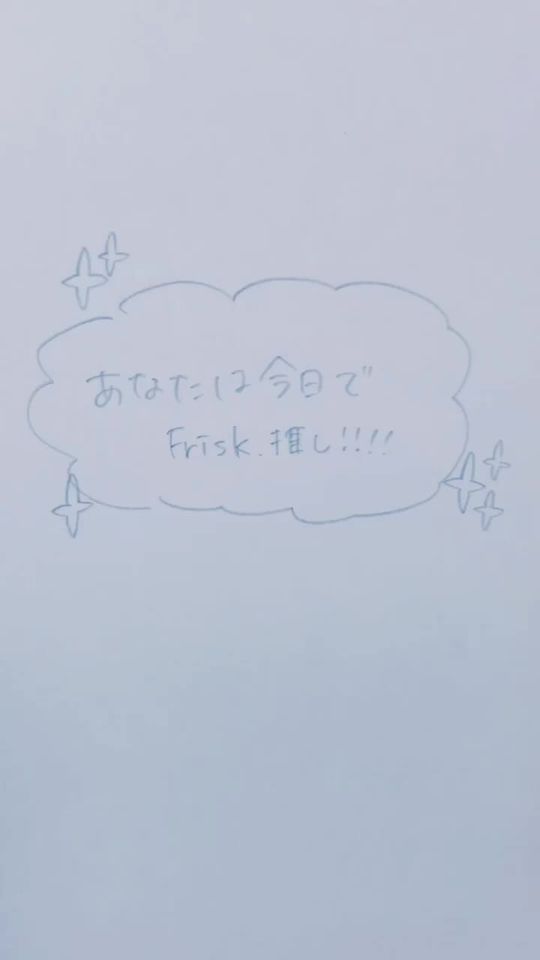 あなたは今日で
Frisk.推し!!!!